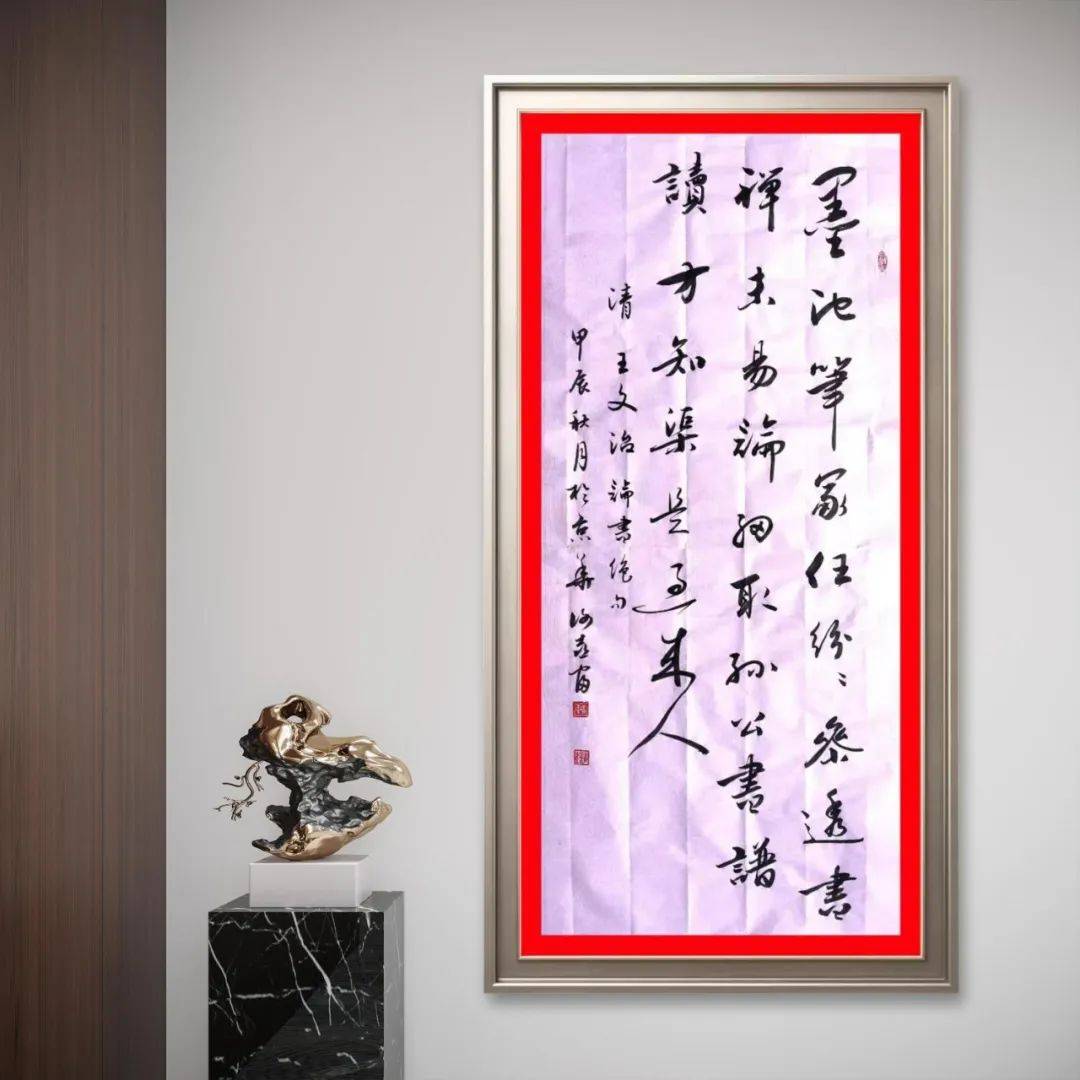 墨池筆冢任紛〻參透書
禪未易論細取孫公書譜
讀方知渠是過來人
清王文治論書絕句
甲辰秋月於京華